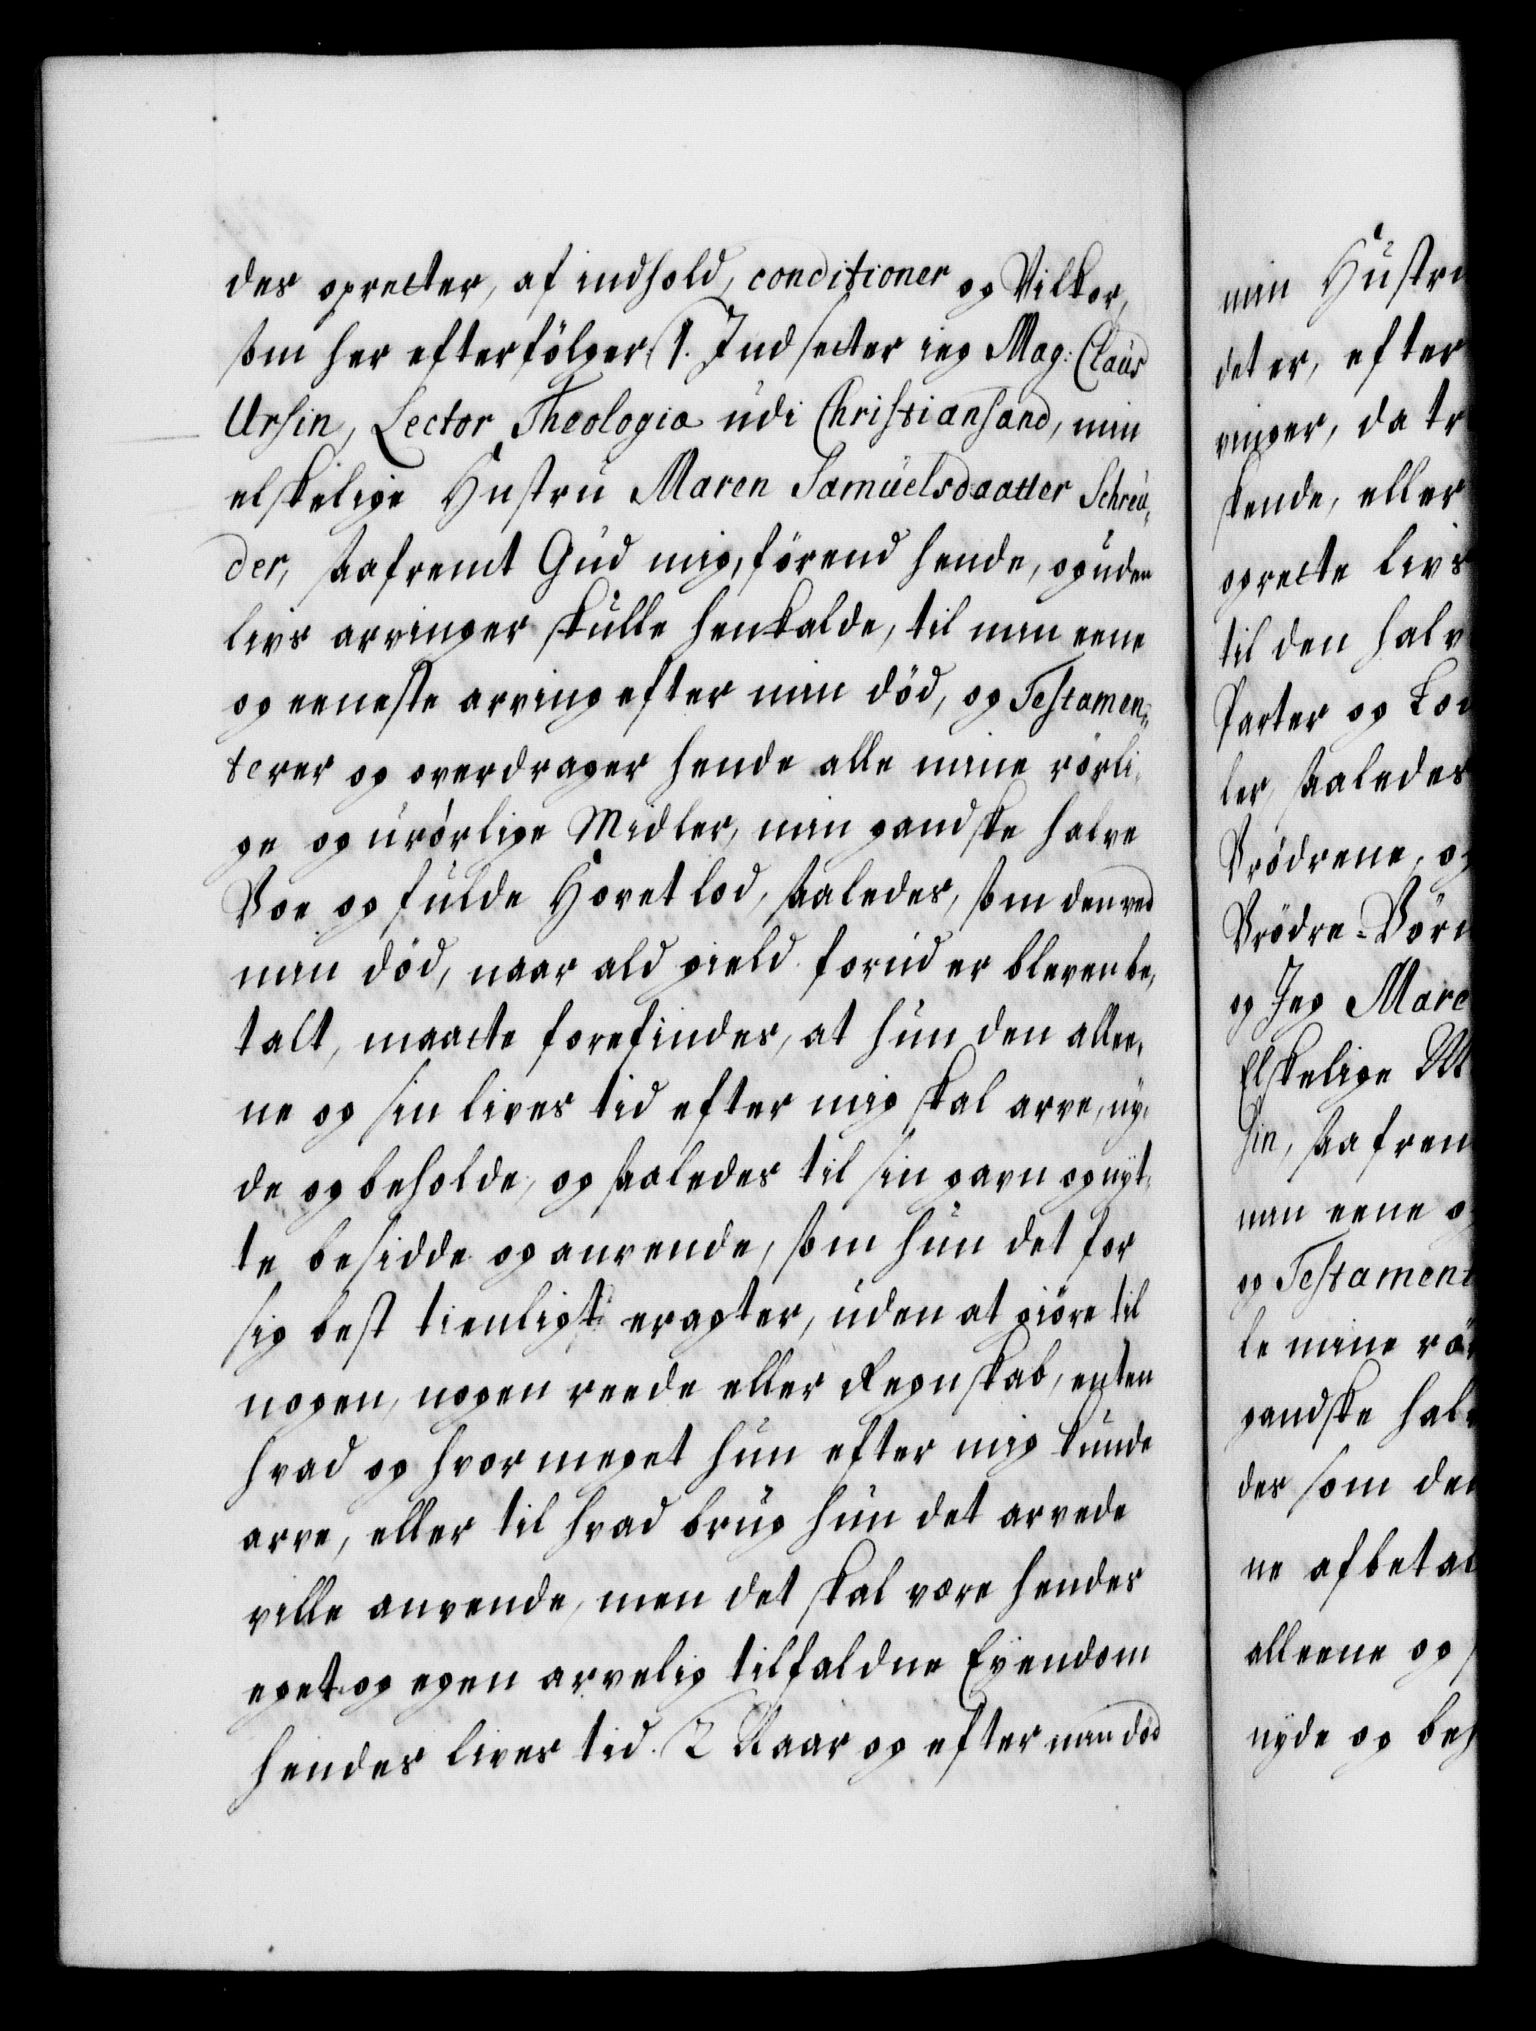 des opretter, af indhold, conditioner og Vilkor,
som her efterfölger. 1. Indsetter ieg Mag: Claus
Ursin, Lector Theologiæ udi Christiansand, min
elskelige Hustru Maren Samüelsdaatter Schreü,
der, saafremt Gud mig, förend hende, og uden
livs arvinger skulle henkalde, til min eene
og eeneste arving efter min död, og Testamen,
terer og overdrager hende alle mine rörli,
ge og urörlige Midler, min gandske halve
Boe og fulde Hovetlod, saaledes, som den ved
min död, naar ald gield forud er bleven be,
talt, maatte forefindes, at hun den allee,
ne og sin lives tid efter mig skal arve, ny,
de og beholde, og saaledes til sin gavn og nyt,
te besidde og anvende, som hun det for
sig best tienligst eragter, uden at giöre til
nogen, nogen reede eller Regnskab, enten
hvad og hvor meget hun efter mig kunde
arve, eller til hvad brug hun det arvede
ville anvende, men det skal være hendes
eget og egen arvelig tilfaldne Eyendom
hendes lives tid. 2 Naar og efter min död
min Hustru
det er, efter
vinger, da tr
kende, eller
oprette livs
til den halv
Parter og Lod
ler, saaledes
Brödrene, og
Brödre-Börn
og Jeg Mare
Elskelige M
sin, saafrem
min eene og
og Testament
le mine rör
gandske halv
des som den
ne afbetal
alleene og s
nyde og beh